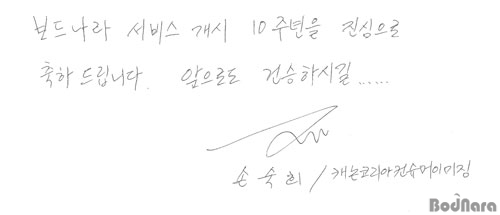 보드나라 서비스 개시 10주년을 진심으로
축하드립니다. 앞으로도 건승하시길......
손숙희 / 캐논코리아컨슈머이미징
BodNara